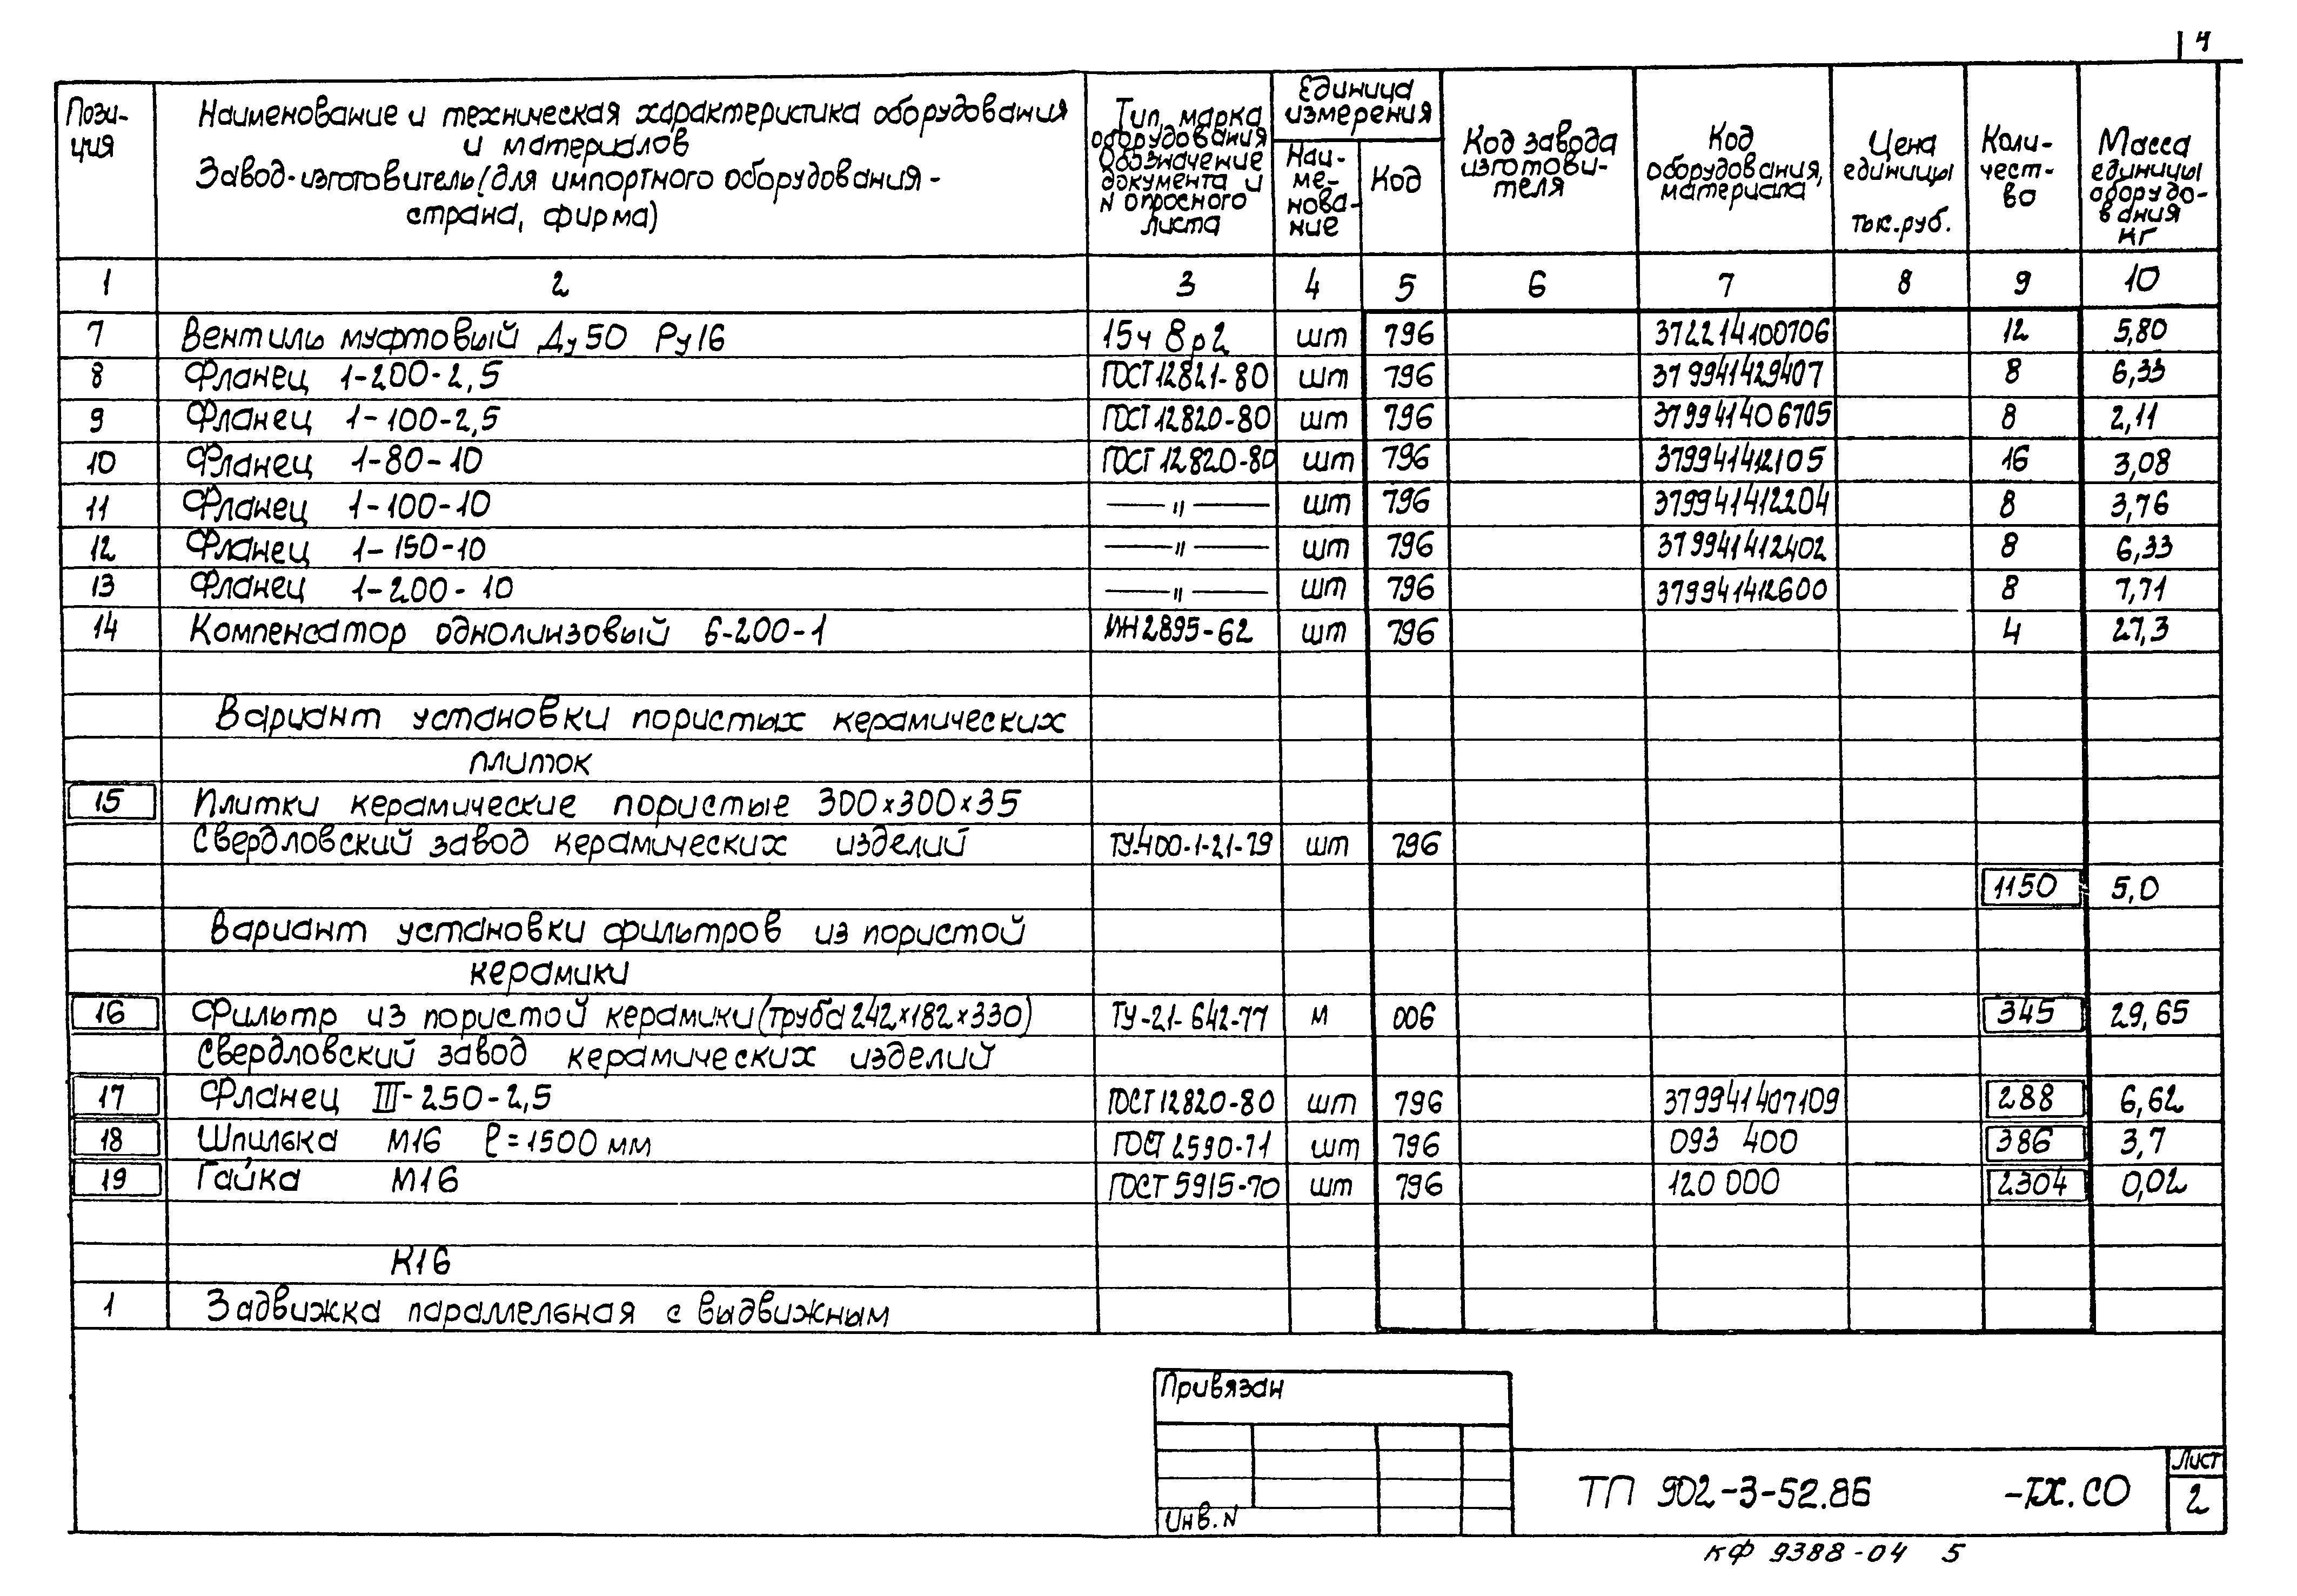 4
Пози-
ция
Наименование и техническая характеристика оборудования
и материалов
Завод-изготовитель (для импортного оборудования -
страна, фирма)
Тип, марка
оборудования
Обозначение
документа и
N опросного
листа
Единица
измерения
Наи-
ме-
нова-
ние
Код
Код завода
изготови-
теля
Код
оборудования,
материала
Цена
единицы
тыс.руб.
Коли-
чест-
во
Масса
единицы
оборудо-
вания
кг
1 2 3 4 5 6 7 8 9 10
7 Вентиль муфтовый Ду50 Ру16 15ч 8р2 шт 796 372214100706 12 5,80
8 Фланец 1-200-2,5 ГОСТ 12821-80 шт 796 379941429407 8 6,33
9 Фланец 1-100-2,5 ГОСТ 12820-80 шт 796 379941406705 8 2,11
10 Фланец 1-80-10 ГОСТ 12820-80 шт 796 379941412105 16 3,08
11 Фланец 1-100-10 —〃— шт 796 379941412204 8 3,76
12 Фланец 1-150-10 —〃— шт 796 379941412402 8 6,33
13 Фланец 1-200-10 —〃— шт 796 379941412600 8 7,71
14 Компенсатор однолинзовый 6-200-1 МН2895-62 шт 796 4 27,3
Вариант установки пористых керамических
плиток
15 Плитки керамические пористые 300×300×35
Свердловский завод керамических изделий ТУ-400-1-21-79 шт 796
1150 5,0
Вариант установки фильтров из пористой
керамики
16 Фильтр из пористой керамики (труба 242×182×330) ТУ-21-642-77 м 006 345 29,65
Свердловский завод керамических изделий
17 Фланец III-250-2,5 ГОСТ 12820-80 шт 796 379941407109 288 6,62
18 Шпилька М16 ℓ=1500 мм ГОСТ 2590-71 шт 796 093 400 386 3,7
19 Гайка М16 ГОСТ 5915-70 шт 796 120 000 2304 0,02
К16
1 Задвижка параллельная с выдвижным
Привязан
Инв. N
ТП 902-3-52.86 -ТХ.СО
Лист
2
КФ 9388-04 5